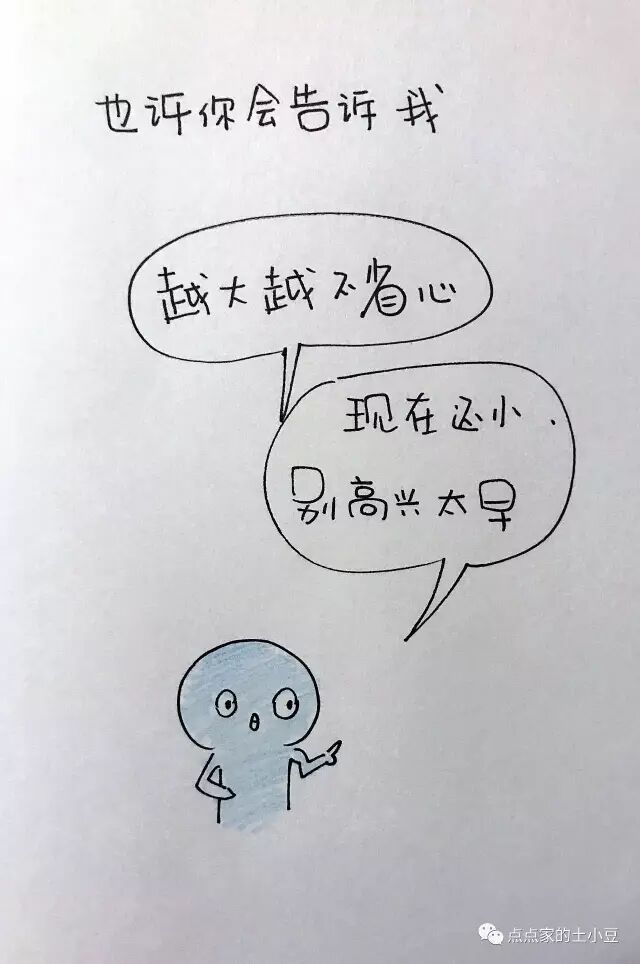 也许你会告诉我
越大越不省心
现在还小.
别高兴太早
点点家的土小豆